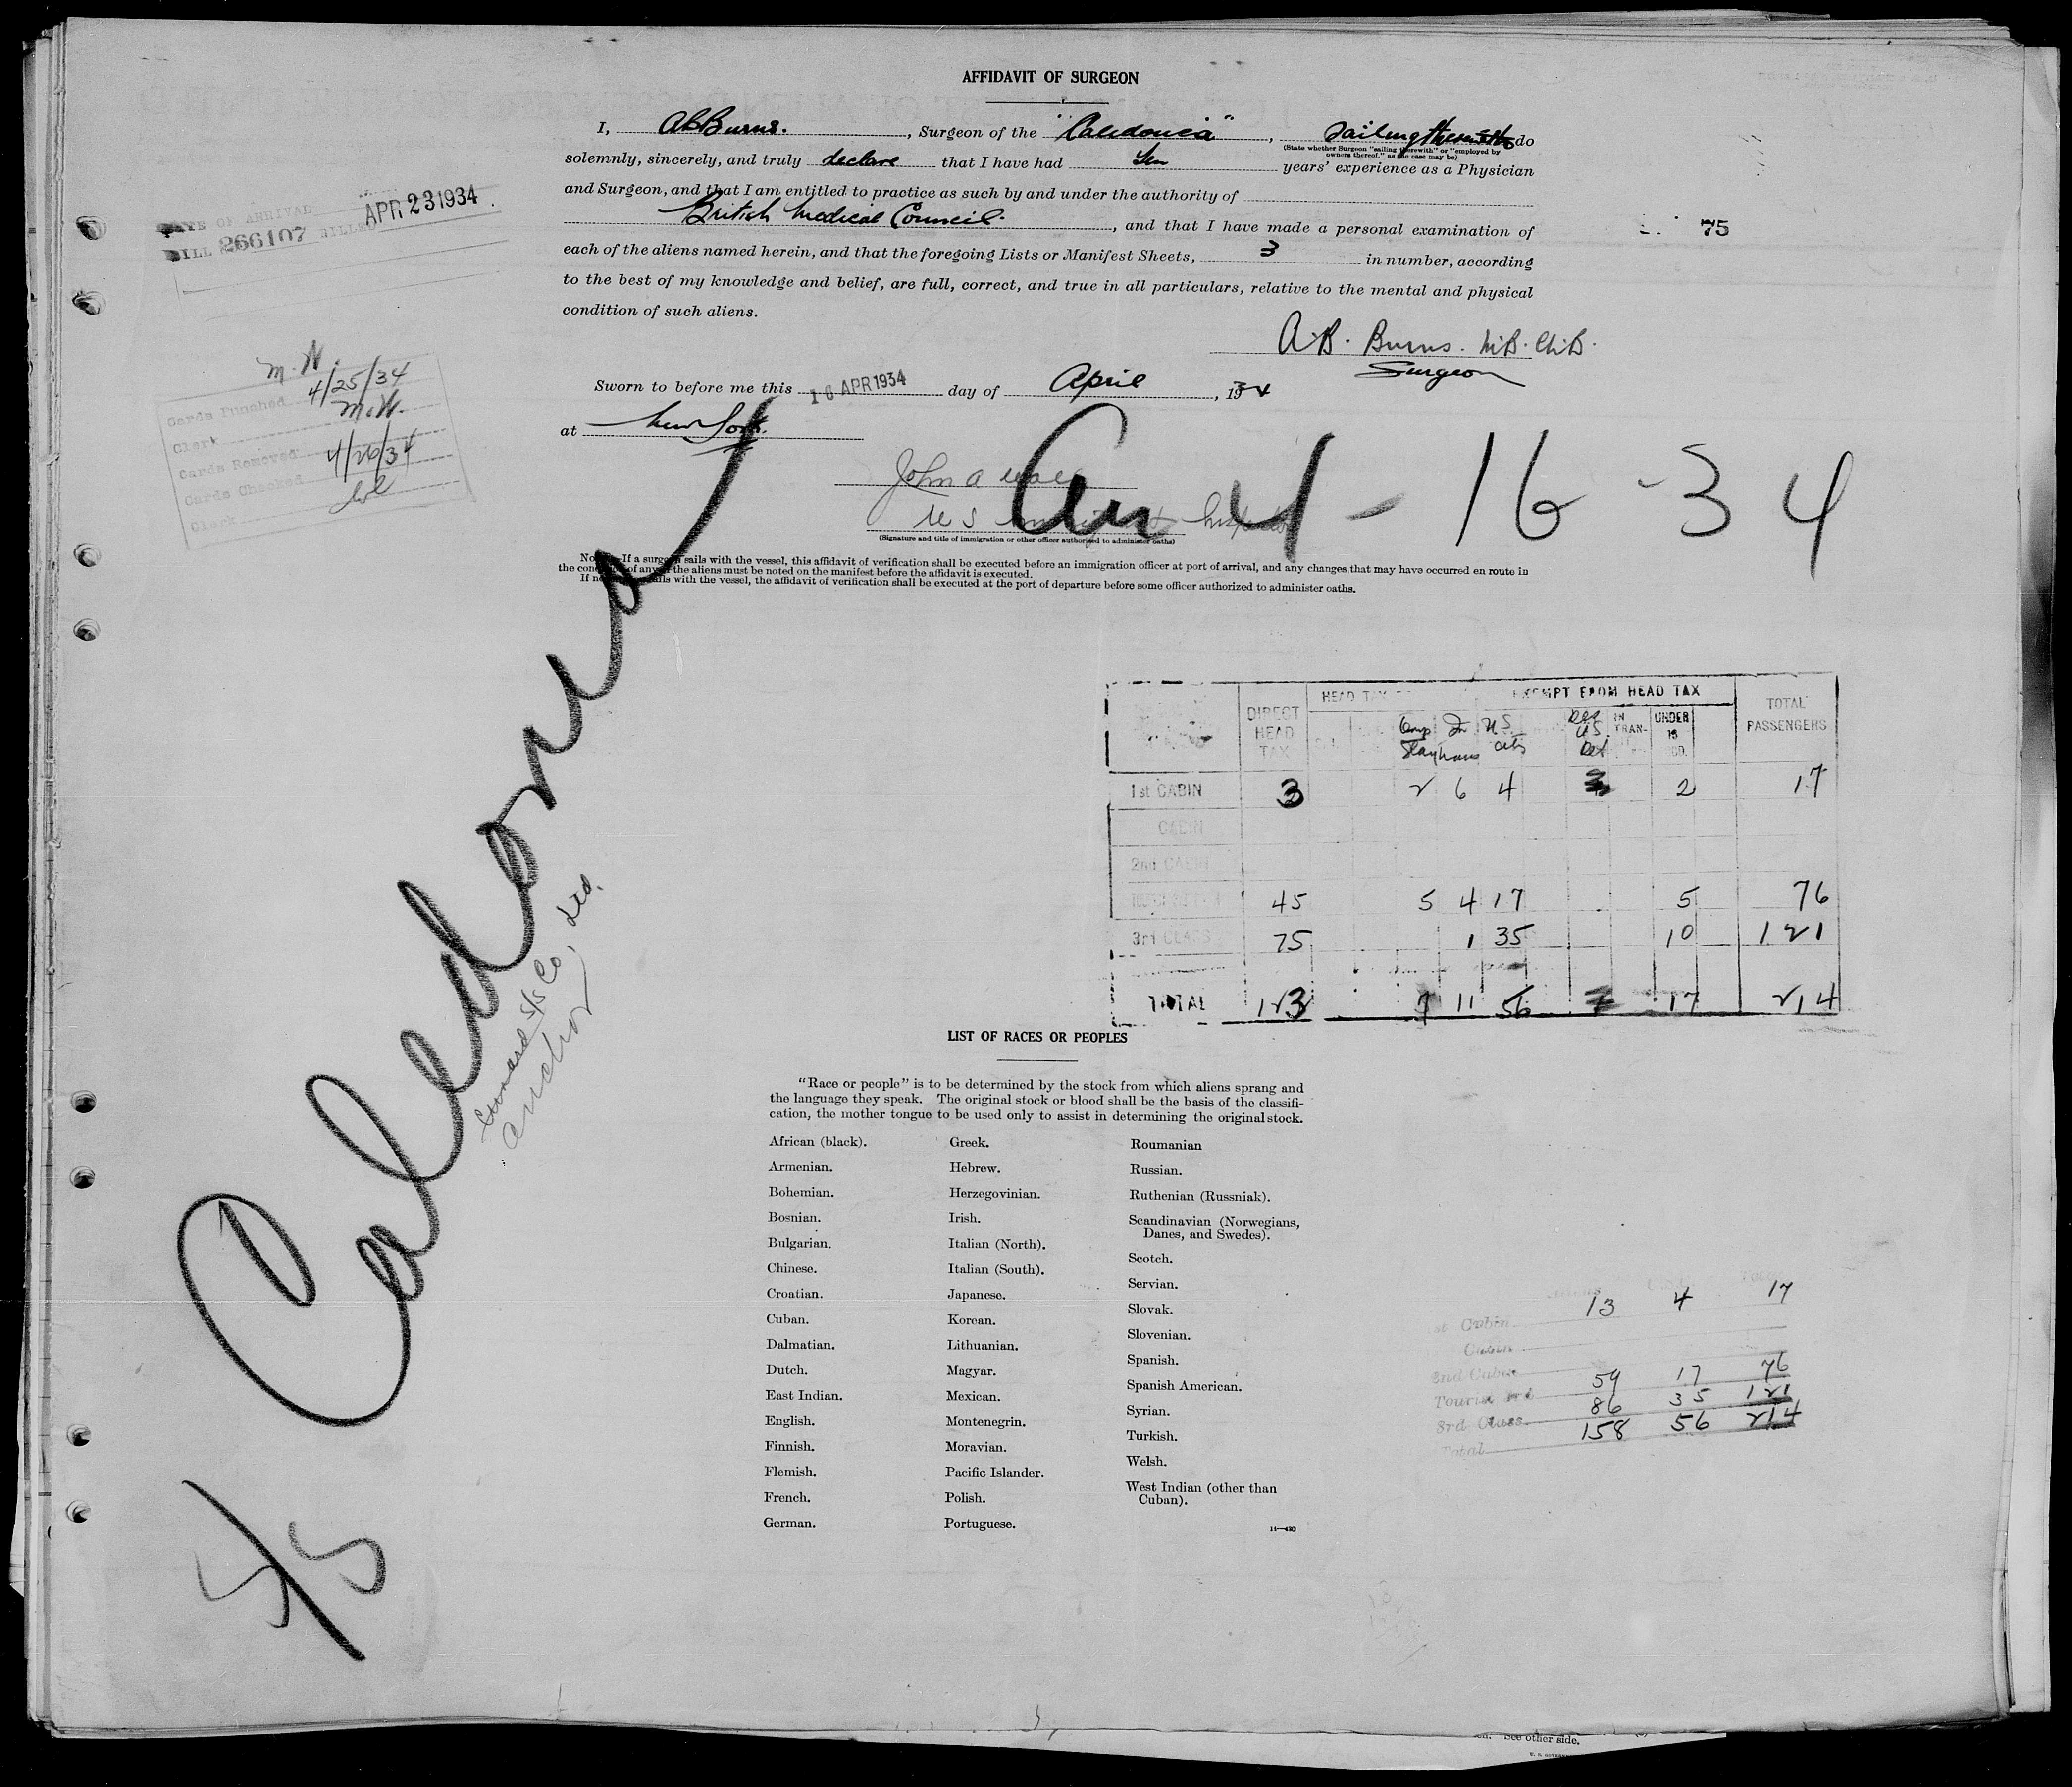 AFFIDAVIT OF SURGEON
I, AB Burns. , Surgeon of the "Caledonia" , sailing therewith do
(State whether Surgeon "sailing therewith" or "employed by
owners thereof," as the case may be)
solemnly, sincerely, and truly declare that I have had ten years' experience as a Physician
and Surgeon, and that I am entitled to practice as such by and under the authority of
British Medical Council. , and that I have made a personal examination of
75
each of the aliens named herein, and that the foregoing Lists or Manifest Sheets, 3 in number, according
to the best of my knowledge and belief, are full, correct, and true in all particulars, relative to the mental and physical
condition of such aliens.
A.B. Burns. M.B. Ch.B.
Surgeon
DATE OF ARRIVAL APR 23 1934
BILL 266107 BILLED
M.W.
Cards Punched 4/25/34
Clerk M.W.
Cards Removed
Cards Checked 4/26/34
Clerk
Sworn to before me this 16 APR 1934 day of April , 1934
at New York.
John A
U S
(Signature and title of immigration or other officer authorized to administer oaths)
Arr 4-16-34
Note.—If a surgeon sails with the vessel, this affidavit of verification shall be executed before an immigration officer at port of arrival, and any changes that may have occurred en route in
the condition of any of the aliens must be noted on the manifest before the affidavit is executed.
If no surgeon sails with the vessel, the affidavit of verification shall be executed at the port of departure before some officer authorized to administer oaths.
S/S Caledonia
Cunard S/S Co, Ltd.
Anchor
DIRECT HEAD TAX HEAD TAX EXEMPT FROM HEAD TAX TOTAL PASSENGERS
U S IN TRAN- UNDER 16
1st CABIN 3 2 6 4 2 17
CABIN
2nd CABIN
45 5 4 17 5 76
3rd CLASS 75 1 35 10 121
TOTAL 123 7 11 56 17 214
LIST OF RACES OR PEOPLES
"Race or people" is to be determined by the stock from which aliens sprang and
the language they speak. The original stock or blood shall be the basis of the classifi-
cation, the mother tongue to be used only to assist in determining the original stock.
African (black).
Armenian.
Bohemian.
Bosnian.
Bulgarian.
Chinese.
Croatian.
Cuban.
Dalmatian.
Dutch.
East Indian.
English.
Finnish.
Flemish.
French.
German.
Greek.
Hebrew.
Herzegovinian.
Irish.
Italian (North).
Italian (South).
Japanese.
Korean.
Lithuanian.
Magyar.
Mexican.
Montenegrin.
Moravian.
Pacific Islander.
Polish.
Portuguese.
Roumanian
Russian.
Ruthenian (Russniak).
Scandinavian (Norwegians,
Danes, and Swedes).
Scotch.
Servian.
Slovak.
Slovenian.
Spanish.
Spanish American.
Syrian.
Turkish.
Welsh.
West Indian (other than
Cuban).
14—430
1st Cabin 13 4 17
Cabin
2nd Cabin
Tourist 3rd 59 17 76
3rd Class 86 35 121
Total 158 56 214
See other side.